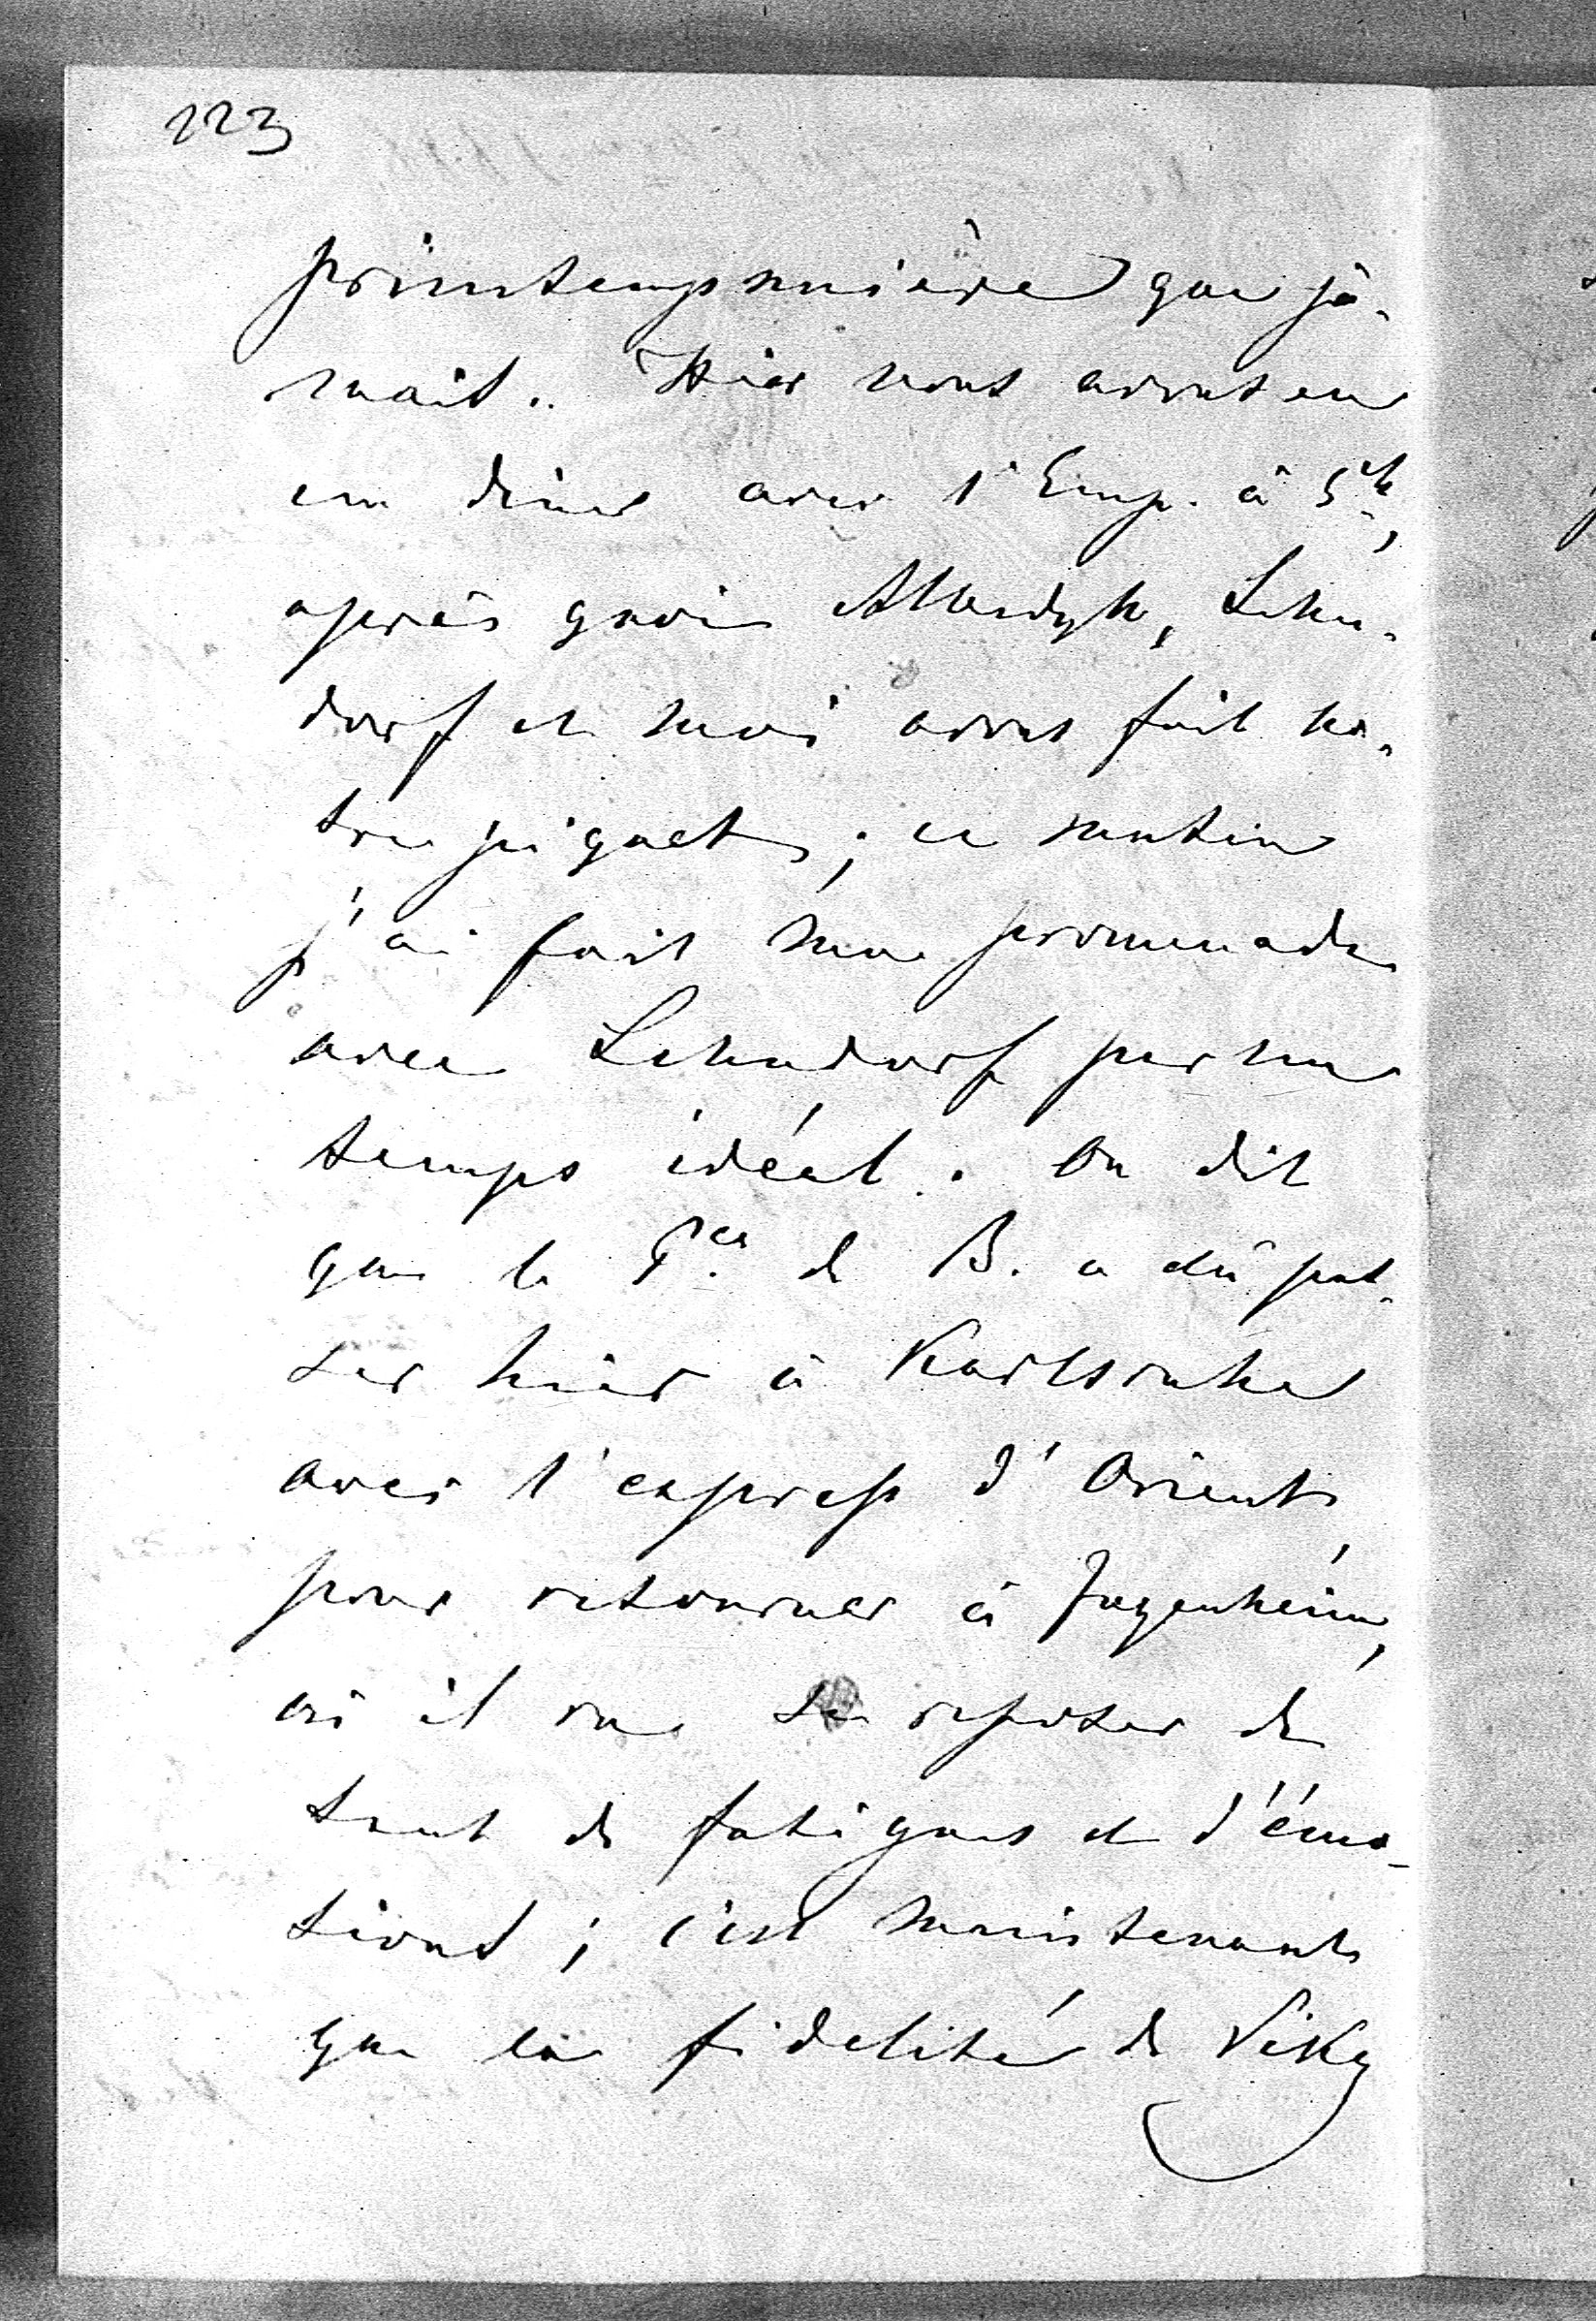 223
printempsnière que ja-
mais.. Hier nous avons eu
un diner avec l'Emp. à 5 h,
après quoi Albedyll, Lehn-
dorf et moi avons fait no-
tre piquet; ce matin
j'ai fait ma promenade
avec Lehndorf par un
temps idéal. On dit
que le Pce de B. a dû pas-
ser hier à Karlsruhe
avec l'express d'Orient,
pour retourner à Jugenheim,
où il va se reposer de
tant de fatigues et d'émo-
tions; c'est maintenant
que la fidelité de Viky